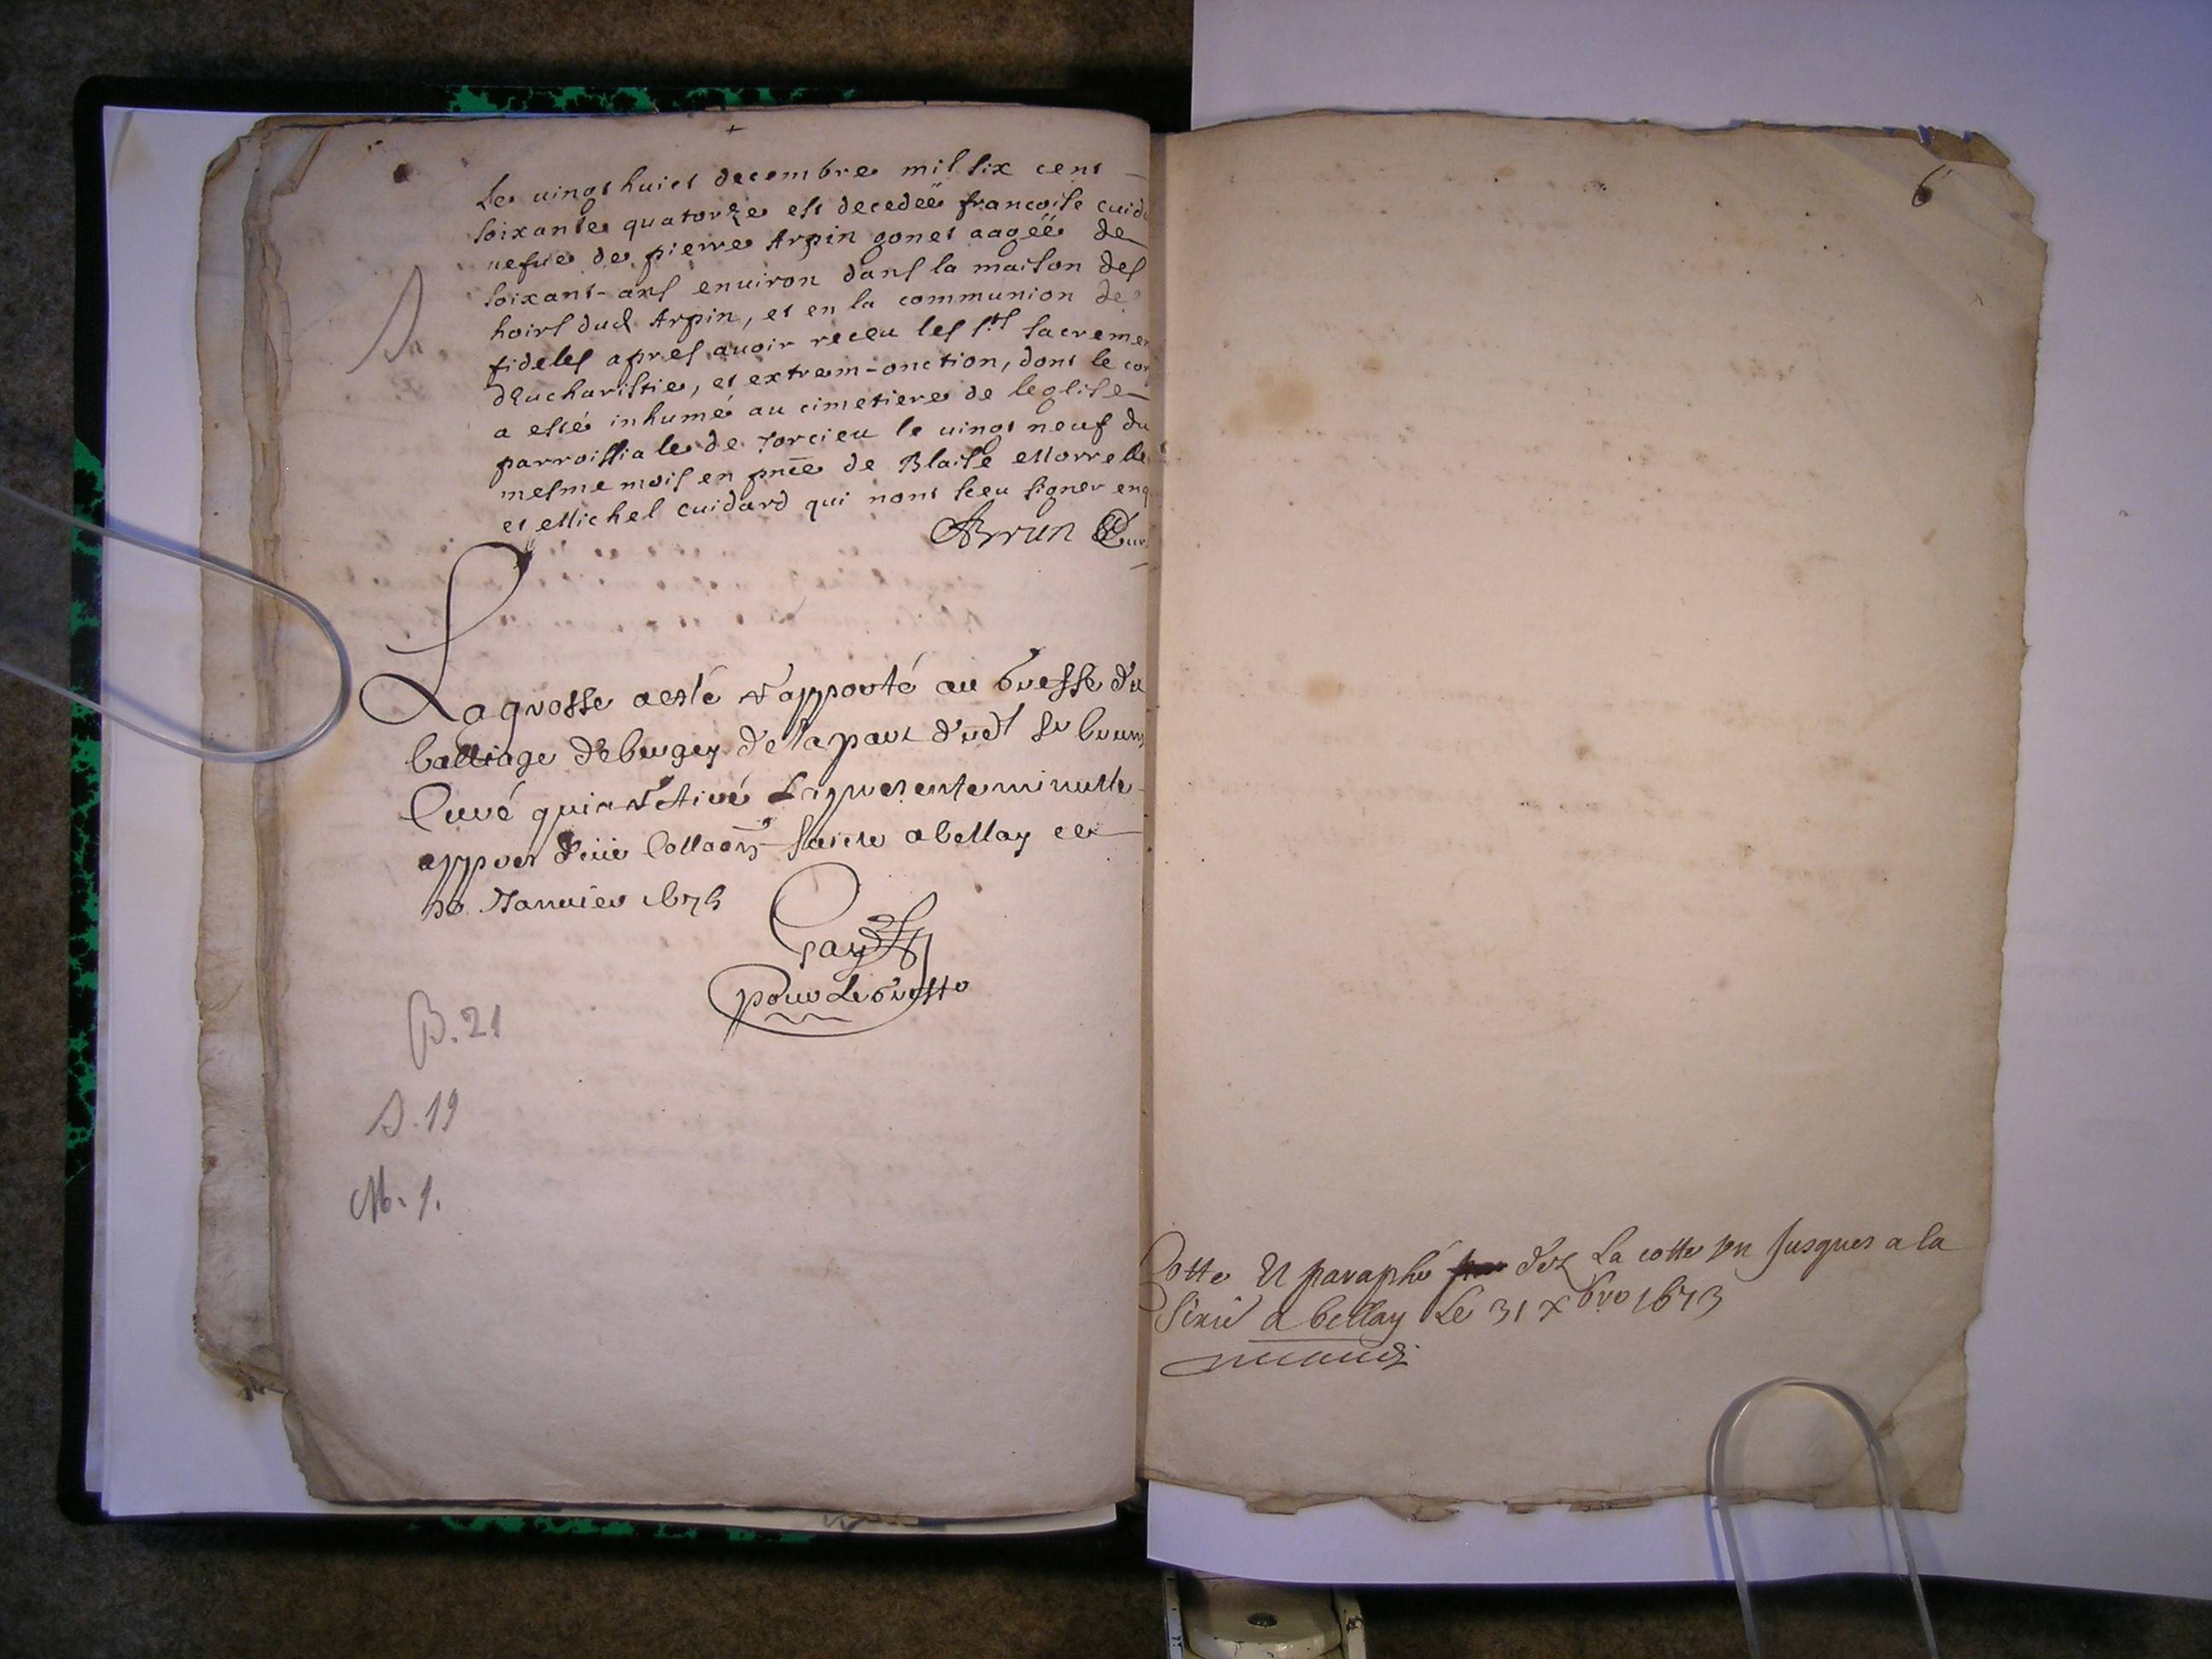 Le vingt huict decembre mil six cent
soixante quatorze est decedeë francoise cuid
vefue de pierre Arpin gonet aageë de
soixant-ans enuiron dans la maison des
hoirs dud Arpin, et en la communion de
fideles apres auoir receu les sts sacreme
deucharistie, et extrem-onction, dont le cor
a esté inhumé au cimetiere de leglise
parroissiale de Torcieu le vingt neuf du
mesme mois en pnce de Blaise Morrel
et Michel cuidard qui nont sceu signer enq
Brun Cur
S
La grosse a esté rapporté au Gresse du
balliage de bugey de la part dudt Sr brun
Curé qui a retiré la presente minutte
appres deüe Collaōn faicte a bellay ce
Januier 1675
pour le Gresse
B. 21
S. 19
M. 1.
6
Cotte et paraphé dez La cotte un Jusques a la
Sixie a bellay Le 31 xbre 1673